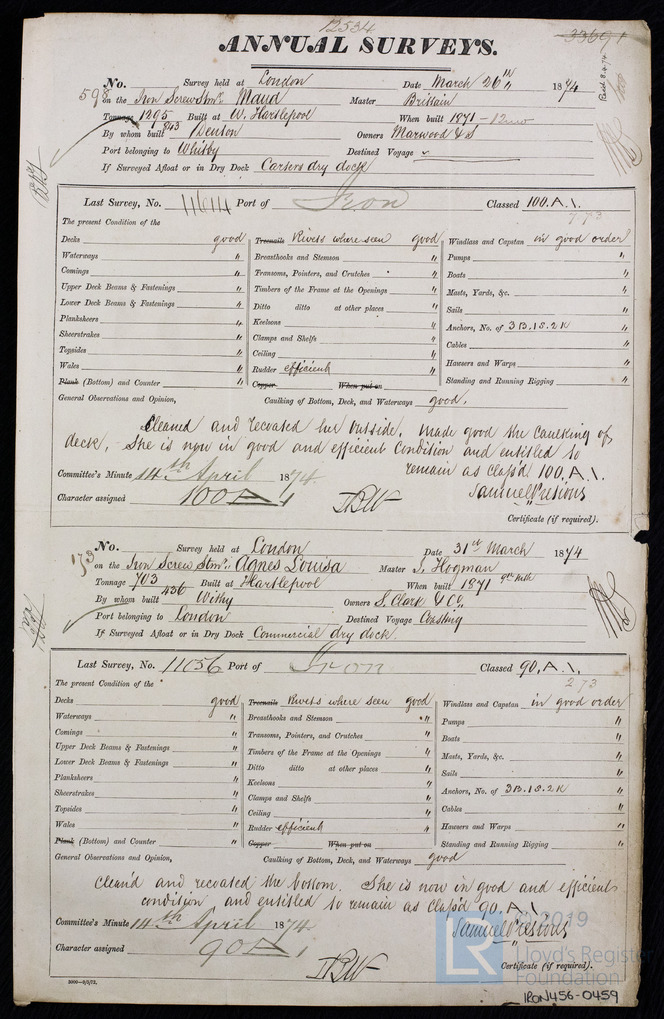 12534
33691
ANNUAL SURVEYS.
No. Survey held at London Date March 26th 1874
598 on the Iron Screw Stmr Maud Master Brittain
Tonnage 1295 Built at W. Hartlepool When built 1871 - 12mo
843
By whom built Denton Owners Marwood & S
Port belonging to Whitby Destined Voyage
If Surveyed Afloat or in Dry Dock Carsers dry dock
Last Survey, No. 11614 Port of Iron Classed 100.A.1.
7 73
The present Condition of the
Decks good Treenails Rivets where seen good Windlass and Capstan in good order
Waterways " Breasthooks and Stemson " Pumps "
Comings " Transoms, Pointers, and Crutches " Boats "
Upper Deck Beams & Fastenings " Timbers of the Frame at the Openings " Masts, Yards, &c. "
Lower Deck Beams & Fastenings " Ditto ditto at other places " Sails "
Planksheers " Keelsons " Anchors, No. of 3B.1S.2K "
Sheerstrakes " Clamps and Shelfs " Cables "
Topsides " Ceiling " Hawsers and Warps "
Wales " Rudder efficient " Standing and Running Rigging "
Plank (Bottom) and Counter " Copper When put on
General Observations and Opinion, Caulking of Bottom, Deck, and Waterways good.
Cleaned and recoated her outside. Made good the caulking of
deck, - She is now in good and efficient condition and entitled to
remain as class'd 100.A.1.
Committee's Minute 14th April 1874
Character assigned 100 A 1
Samuel Presious
Certificate (if required).
No. Survey held at London Date 31st March 1874
173 on the Iron Screw Stmr Agnes Louisa Master J. Hogman
Tonnage 703 Built at Hartlepool When built 1871 9th Mth
436
By whom built Withy Owners S. Clark & Co
Port belonging to London Destined Voyage Coasting
If Surveyed Afloat or in Dry Dock Commercial dry dock.
Last Survey, No. 11056 Port of Iron Classed 90.A.1.
2 73
The present Condition of the
Decks good Treenails Rivets where seen good Windlass and Capstan in good order
Waterways " Breasthooks and Stemson " Pumps "
Comings " Transoms, Pointers, and Crutches " Boats "
Upper Deck Beams & Fastenings " Timbers of the Frame at the Openings " Masts, Yards, &c. "
Lower Deck Beams & Fastenings " Ditto ditto at other places " Sails "
Planksheers " Keelsons " Anchors, No. of 3B.1S.2K "
Sheerstrakes " Clamps and Shelfs " Cables "
Topsides " Ceiling " Hawsers and Warps "
Wales " Rudder efficient " Standing and Running Rigging "
Plank (Bottom) and Counter " Copper When put on
General Observations and Opinion, Caulking of Bottom, Deck, and Waterways good
Clean'd and recoated the bottom. She is now in good and efficient
condition and entitled to remain as class'd 90.A.1.
Committee's Minute 14th April 1874
Samuel Presious
Character assigned 90 A 1
Certificate (if required).
3000—3/2/72.
© 2019
LR Lloyd's Register
Foundation
IRON456-0459